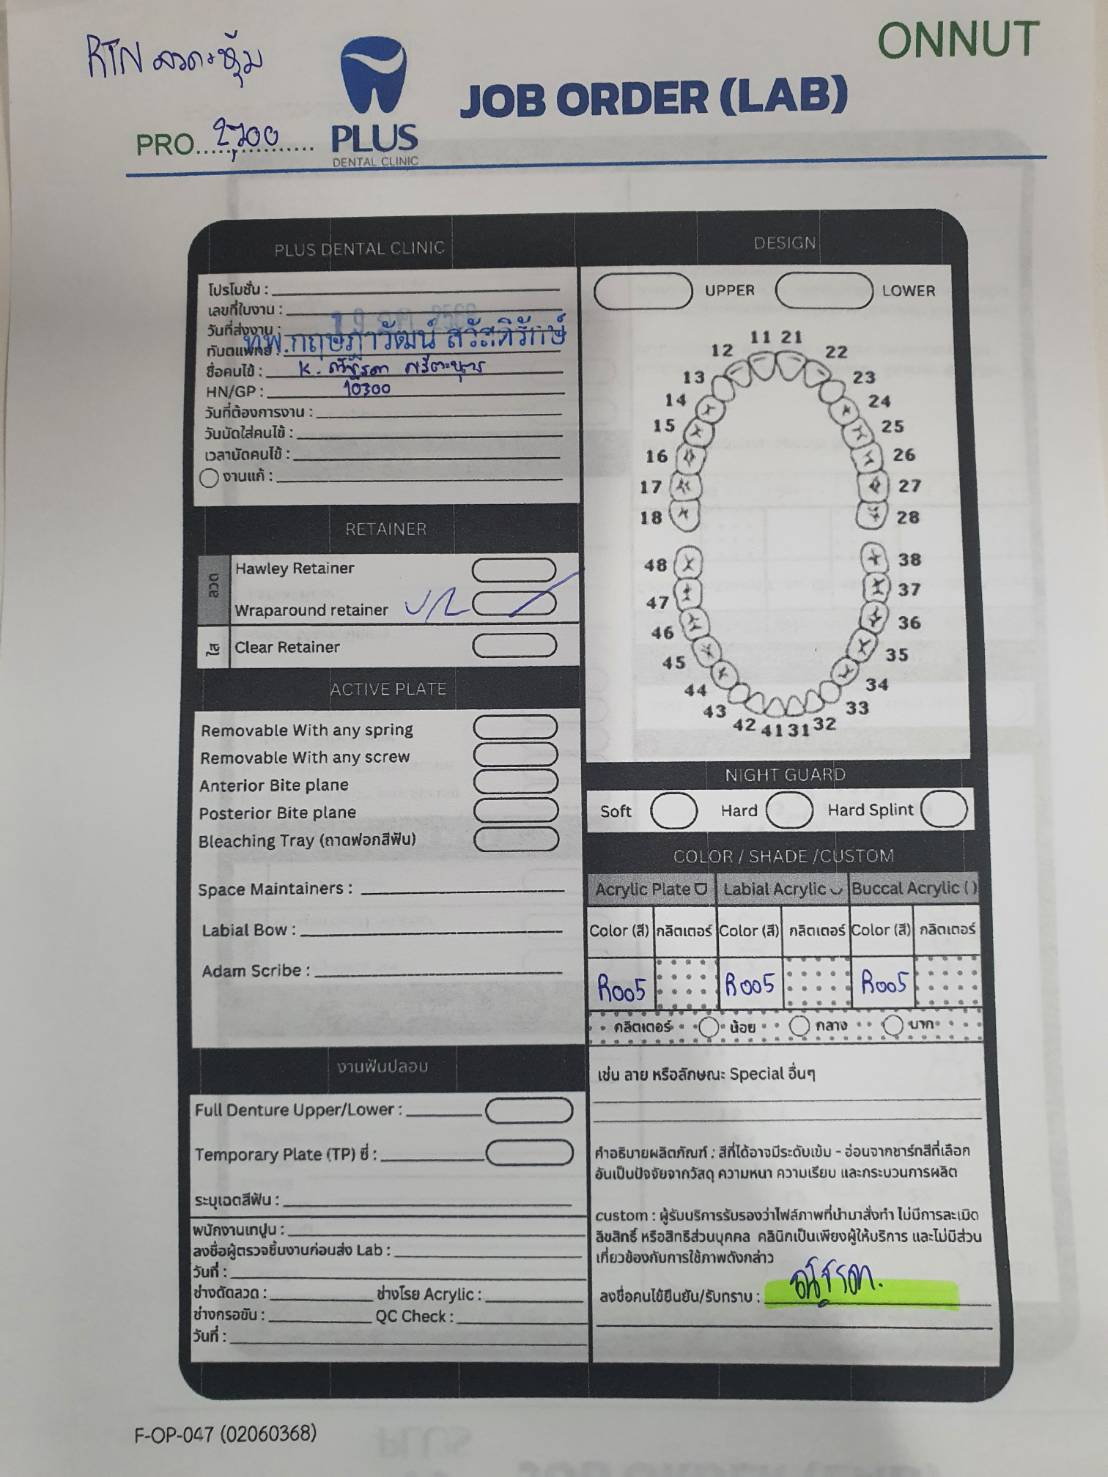 ONNUT
RTN
PRO. 2,700
PLUS
DENTAL CLINIC
JOB ORDER (LAB)
PLUS DENTAL CLINIC
โปรโมชั่น :
เลขที่ใบงาน :
วันที่ส่งงาน :
ทันตแพทย์ : ทพ.กฤษฎาวัฒน์ สวัสดิรักษ์
ชื่อคนไข้ : K.
HN/GP : 10300
วันที่ต้องการงาน :
วันนัดใส่คนไข้ :
เวลานัดคนไข้ :
งานแก้ :
RETAINER
ลวด
Hawley Retainer
Wraparound retainer U/L
ใส
Clear Retainer
ACTIVE PLATE
Removable With any spring
Removable With any screw
Anterior Bite plane
Posterior Bite plane
Bleaching Tray (ถาดฟอกสีฟัน)
Space Maintainers :
Labial Bow :
Adam Scribe :
งานฟันปลอม
Full Denture Upper/Lower :
Temporary Plate (TP) ซี่ :
ระบุเฉดสีฟัน :
พนักงานเทปูน :
ลงชื่อผู้ตรวจชิ้นงานก่อนส่ง Lab :
วันที่ :
ช่างดัดลวด : ช่างโรย Acrylic :
ช่างกรอขัน : QC Check :
วันที่ :
DESIGN
UPPER LOWER
11 21
12 22
13 23
14 24
15 25
16 26
17 27
18 28
48 38
47 37
46 36
45 35
44 34
43 33
42 41 31 32
NIGHT GUARD
Soft Hard Hard Splint
COLOR / SHADE /CUSTOM
Acrylic Plate Labial Acrylic Buccal Acrylic ( )
Color (สี) กลิตเตอร์ Color (สี) กลิตเตอร์ Color (สี) กลิตเตอร์
R005 R005 R005
กลิตเตอร์ น้อย กลาง มาก
เช่น ลาย หรือลักษณะ Special อื่นๆ
คำอธิบายผลิตภัณฑ์ : สีที่ได้อาจมีระดับเข้ม - อ่อนจากชาร์ทสีที่เลือก
อันเป็นปัจจัยจากวัสดุ ความหนา ความเรียบ และกระบวนการผลิต
custom : ผู้รับบริการรับรองว่าไฟล์ภาพที่นำมาสั่งทำ ไม่มีการละเมิด
ลิขสิทธิ์ หรือสิทธิส่วนบุคคล คลินิกเป็นเพียงผู้ให้บริการ และไม่มีส่วน
เกี่ยวข้องกับการใช้ภาพดังกล่าว
ลงชื่อคนไข้ยืนยัน/รับทราบ :
F-OP-047 (02060368)